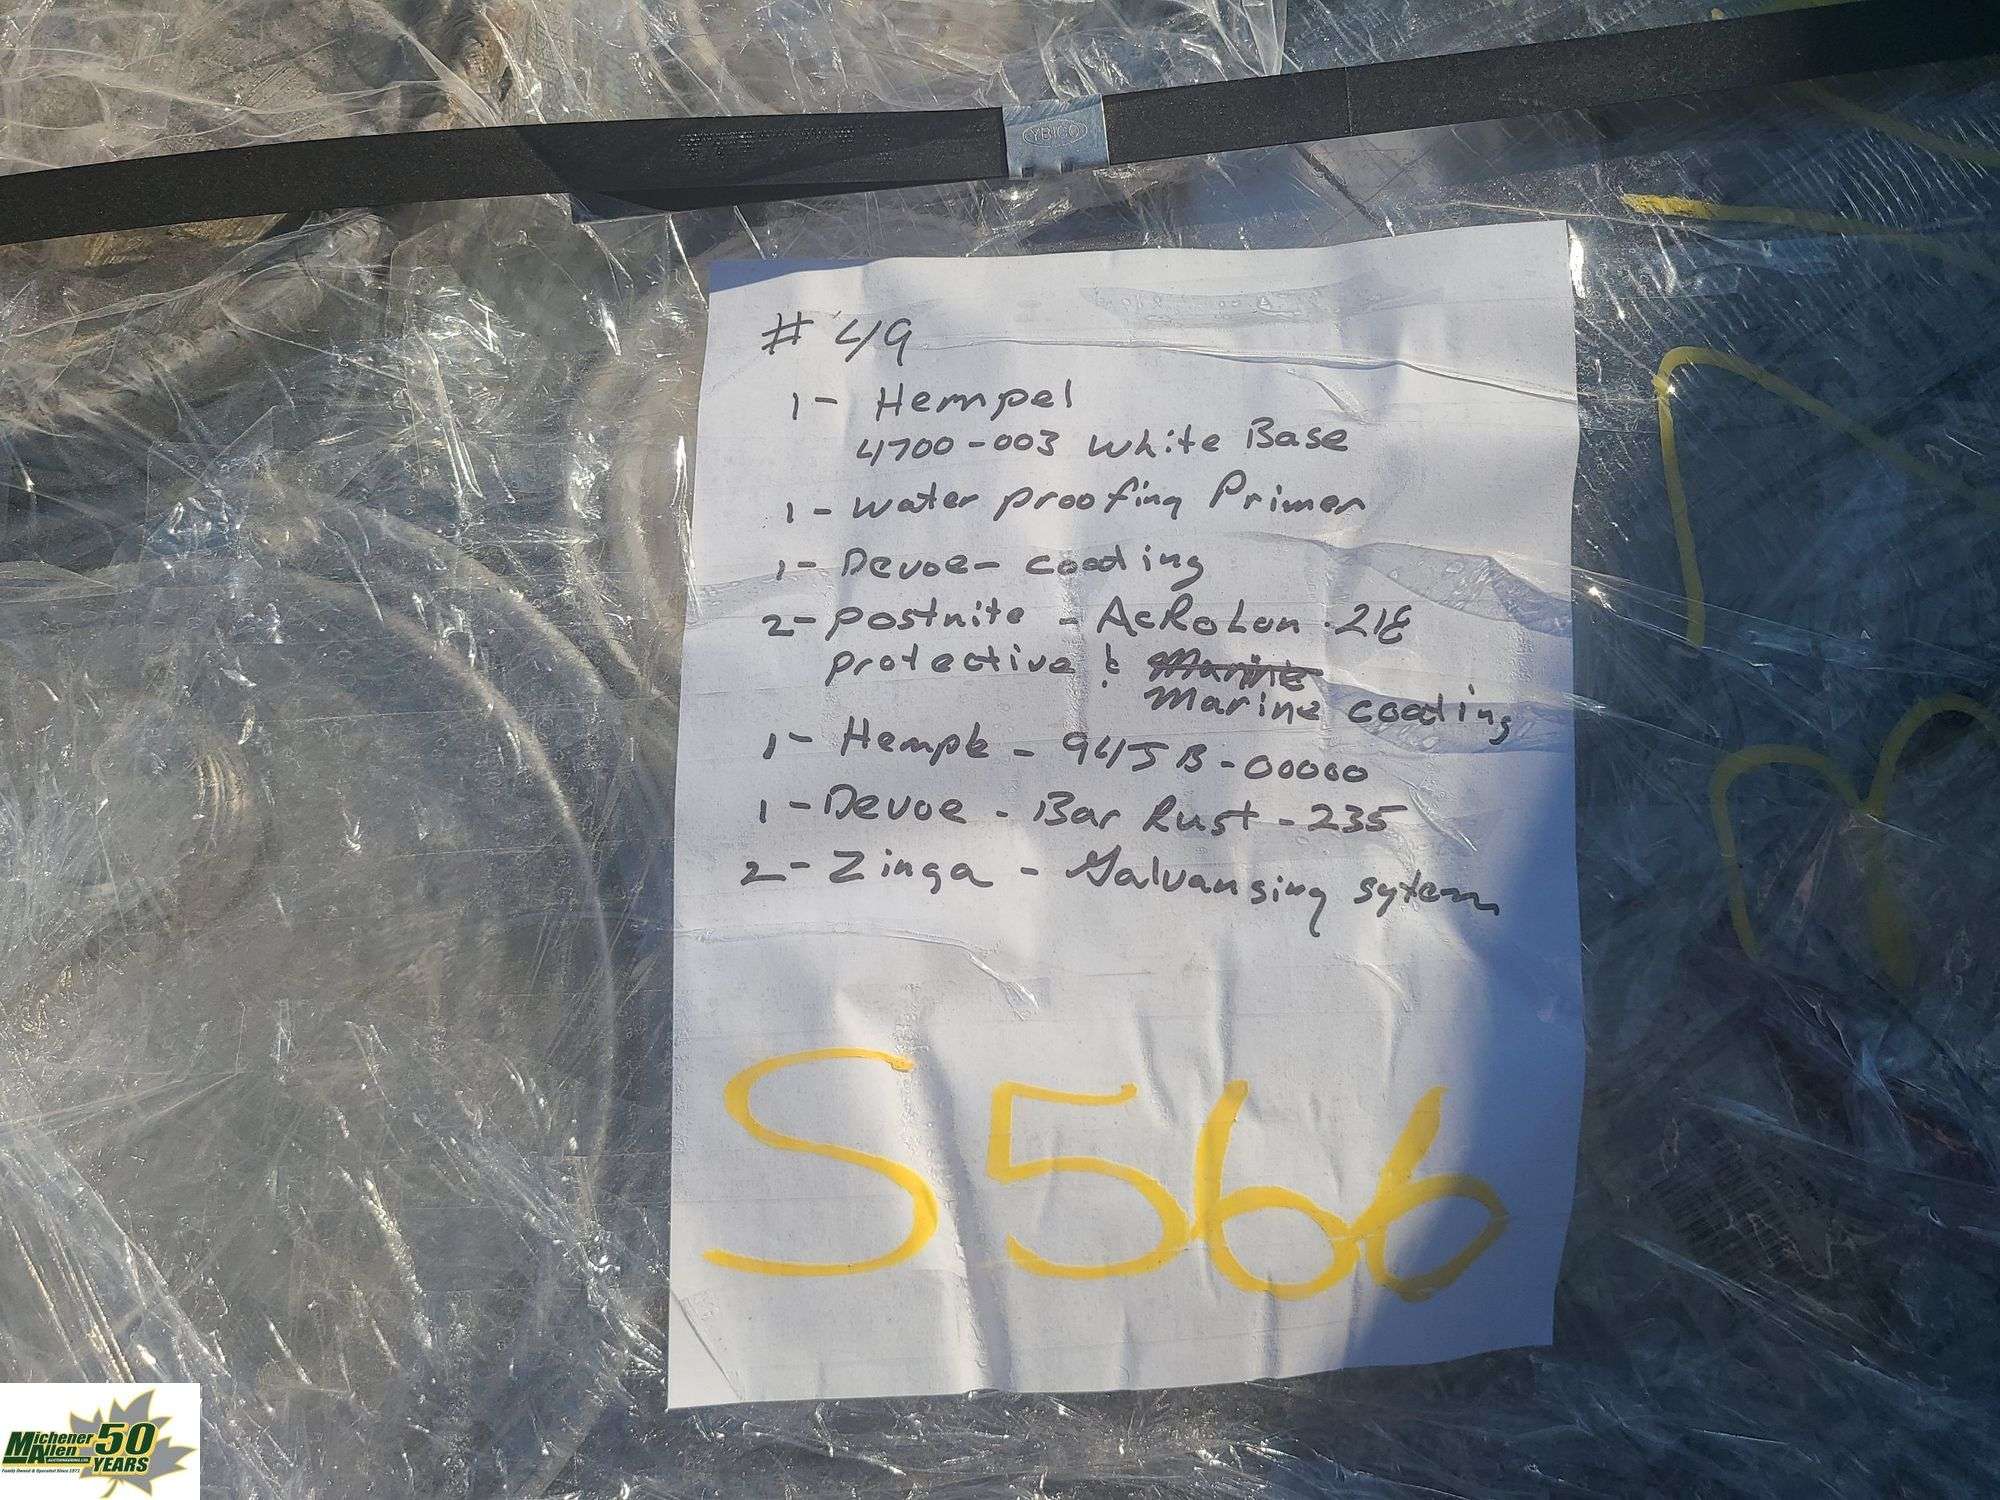 YBICO
# 49
1- Hempel
4700-003 White Base
1- water proofing Primer
1- Devoe- coating
2- postnite - AcRoLon .218
protective & Marine
Marine coating
1- Hemple - 945B-00000
1- Devoe - Bar Rust - 235
2- Zinga - Galvansing sytem
S566
Michener
Allen
AUCTIONEERING LTD.
50
YEARS
Family Owned & Operated Since 1971